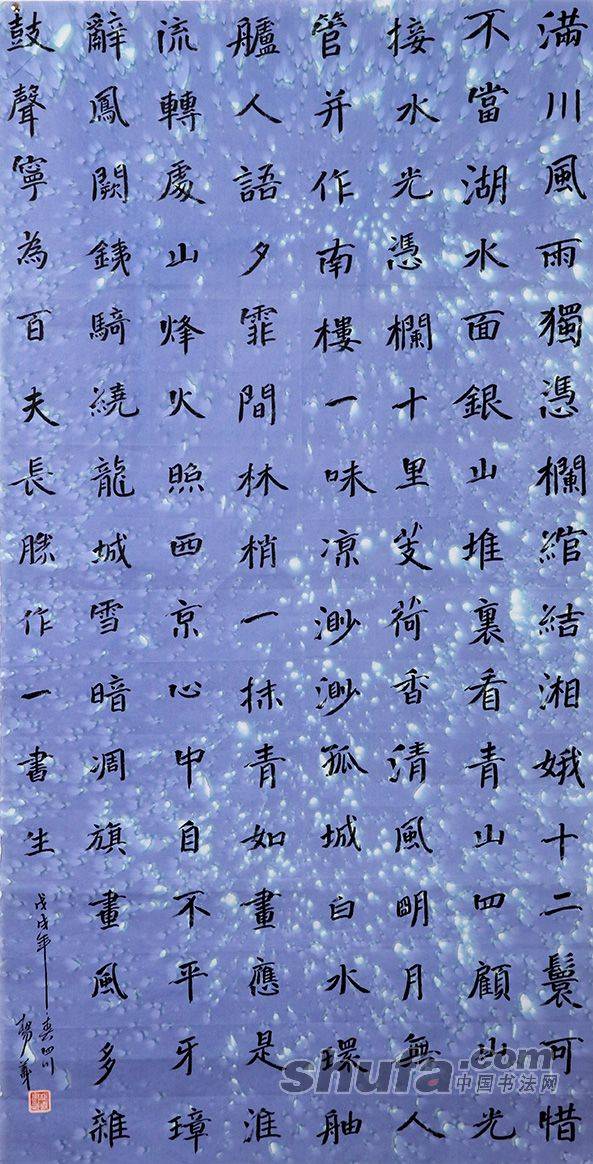 滿川風雨獨憑欄綰結湘娥十二鬟可惜
不當湖水面銀山堆裏看青山四顧山光
接水光憑欄十里芰荷香清風明月無人
管并作南樓一味凉渺渺孤城白水環舳
艫人語夕霏間林梢一抹青如畫應是淮
流轉處山烽火照西京心中自不平牙璋
辭鳳闕銕騎繞龍城雪暗凋旗畫風多雜
鼓聲寧為百夫長勝作一書生
戊戌年
四川
shufa.com
中国书法网